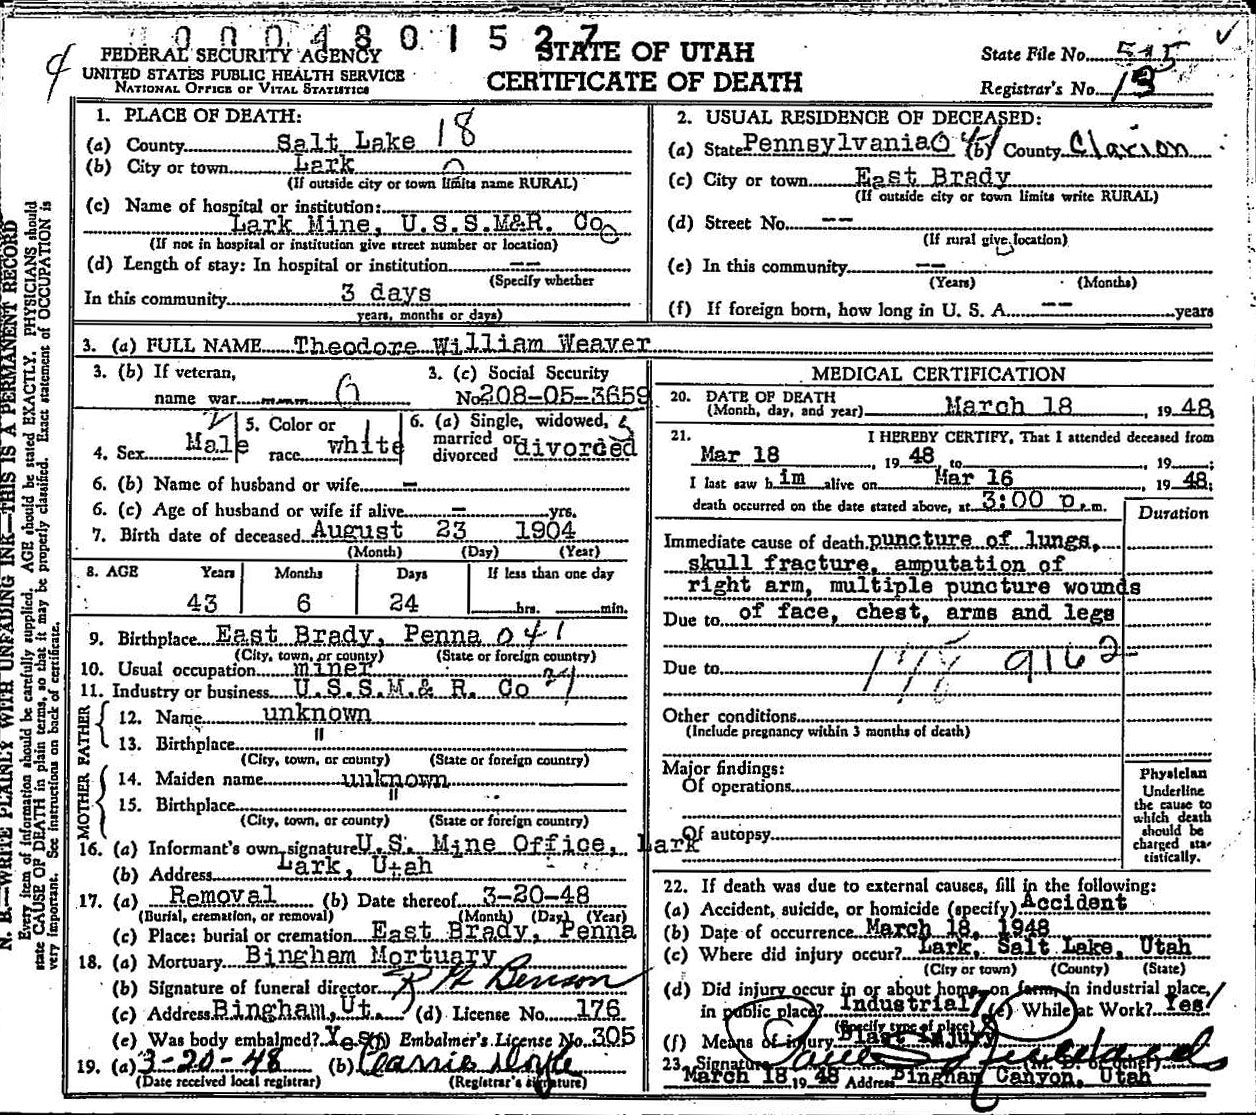 0004801527
FEDERAL SECURITY AGENCY
UNITED STATES PUBLIC HEALTH SERVICE
NATIONAL OFFICE OF VITAL STATISTICS
STATE OF UTAH
CERTIFICATE OF DEATH
State File No. 515
Registrar's No. 13
1. PLACE OF DEATH:
(a) County Salt Lake 18
(b) City or town Lark 0
(If outside city or town limits name RURAL)
(c) Name of hospital or institution:
Lark Mine, U.S.S.M&R. Co
(If not in hospital or institution give street number or location)
(d) Length of stay: In hospital or institution --
(Specify whether
In this community 3 days
years, months or days)
2. USUAL RESIDENCE OF DECEASED:
(a) State Pennsylvania (b) County Clarion
(c) City or town East Brady
(If outside city or town limits write RURAL)
(d) Street No. --
(If rural give location)
(e) In this community --
(Years) (Months)
(f) If foreign born, how long in U. S. A. -- years
3. (a) FULL NAME Theodore William Weaver
3. (b) If veteran,
name war
3. (c) Social Security
No. 208-05-3659
4. Sex Male
5. Color or
race white
6. (a) Single, widowed,
married or
divorced divorced
6. (b) Name of husband or wife -
6. (c) Age of husband or wife if alive - yrs.
7. Birth date of deceased August 23 1904
(Month) (Day) (Year)
8. AGE Years Months Days If less than one day
43 6 24 hrs. min.
9. Birthplace East Brady, Penna 041
(City, town, or county) (State or foreign country)
10. Usual occupation miner
11. Industry or business U.S.S.M.& R. Co
FATHER
12. Name unknown
13. Birthplace "
(City, town, or county) (State or foreign country)
MOTHER
14. Maiden name unknown
15. Birthplace "
(City, town, or county) (State or foreign country)
16. (a) Informant's own signature U.S. Mine Office, Lark
(b) Address Lark, Utah
17. (a) Removal (b) Date thereof 3-20-48
(Burial, cremation, or removal) (Month) (Day) (Year)
(c) Place: burial or cremation East Brady, Penna
18. (a) Mortuary Bingham Mortuary
(b) Signature of funeral director Benson
(c) Address Bingham, Ut. (d) License No. 176
(e) Was body embalmed? Yes (f) Embalmer's License No. 305
19. (a) 3-20-48 (b)
(Date received local registrar) (Registrar's signature)
MEDICAL CERTIFICATION
20. DATE OF DEATH
(Month, day, and year) March 18, 1948
21. I HEREBY CERTIFY, That I attended deceased from
Mar 18, 1948 to , 19 ;
I last saw him alive on Mar 16, 1948;
death occurred on the date stated above, at 3:00 p.m.
Duration
Immediate cause of death puncture of lungs,
skull fracture, amputation of
right arm, multiple puncture wounds
Due to of face, chest, arms and legs
Due to 178 9162
Other conditions
(Include pregnancy within 3 months of death)
Major findings:
Of operations
Of autopsy
Physician
Underline
the cause to
which death
should be
charged sta-
tistically.
22. If death was due to external causes, fill in the following:
(a) Accident, suicide, or homicide (specify) Accident
(b) Date of occurrence March 18, 1948
(c) Where did injury occur? Lark, Salt Lake, Utah
(City or town) (County) (State)
(d) Did injury occur in or about home, on farm, in industrial place,
in public place? Industrial (e) While at Work? Yes
(Specify type of place)
(f) Means of injury Blast injury
23. Signature (M. D. or other)
March 18, 1948 Address Bingham Canyon, Utah
N. B.—WRITE PLAINLY WITH UNFADING INK—THIS IS A PERMANENT RECORD
Every item of information should be carefully supplied. AGE should be stated EXACTLY. PHYSICIANS should
state CAUSE OF DEATH in plain terms, so that it may be properly classified. Exact statement of OCCUPATION is
very important. See instructions on back of certificate.